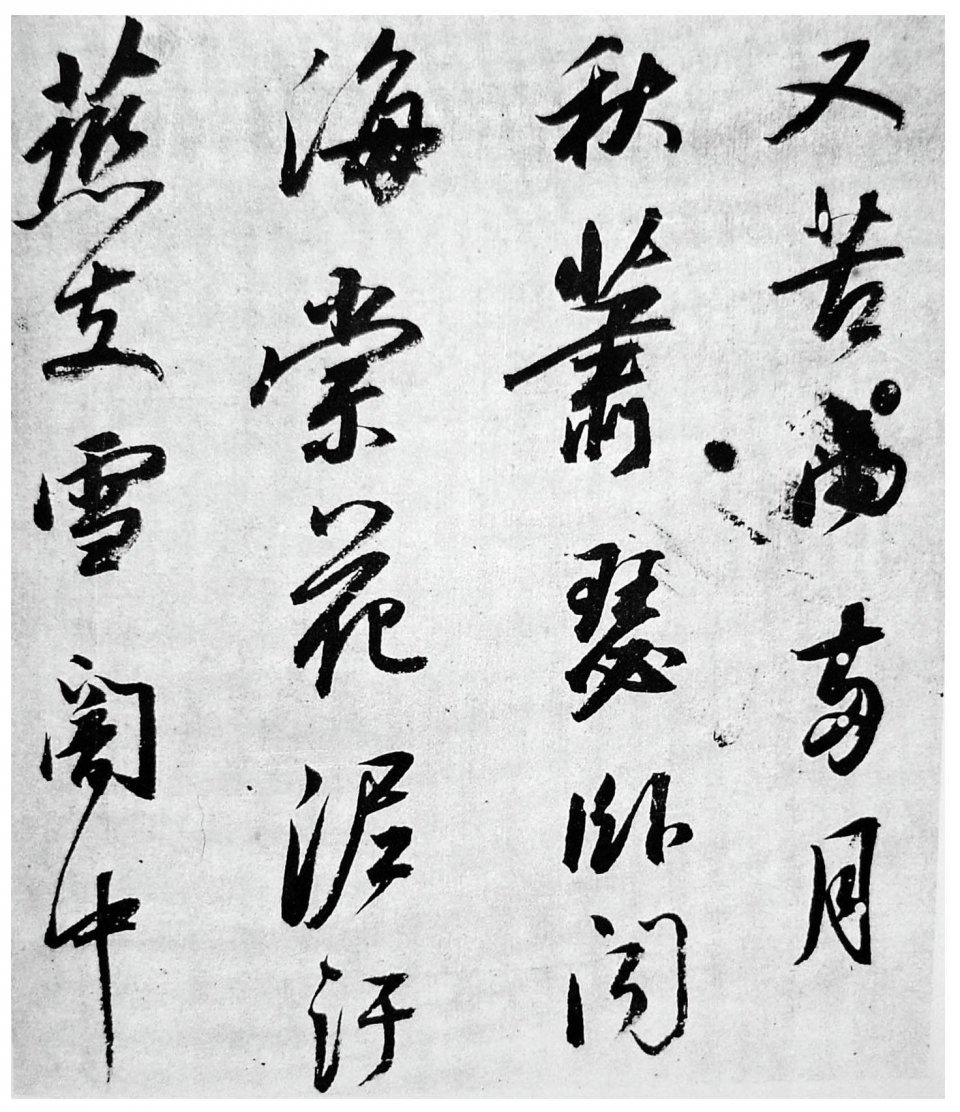 又苦雨兩月
秋蕭瑟卧聞
海棠花泥汙
燕支雪闇中